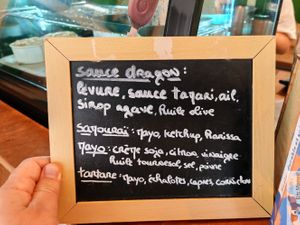 sauce dragon :
levure, sauce tamari, ail,
sirop agave, huile olive
Samouraï : Mayo, ketchup, Harissa
Mayo : crème soja, citron, vinaigre
huile tournesol, sel, poivre
tartare : Mayo, échalotes, capres, cornichon